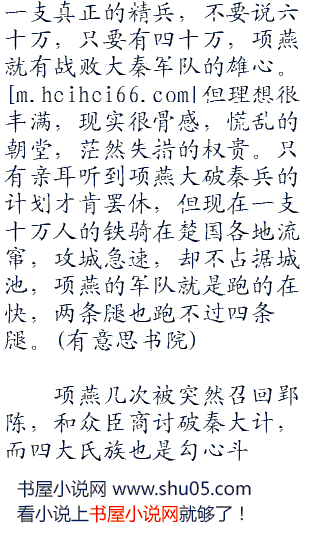 一支真正的精兵，不要说六
十万，只要有四十万，项燕
就有战败大秦军队的雄心。
[m.hcihci66.com]但理想很
丰满，现实很骨感，慌乱的
朝堂，茫然失措的权贵。只
有亲耳听到项燕大破秦兵的
计划才肯罢休，但现在一支
十万人的铁骑在楚国各地流
窜，攻城急速，却不占据城
池，项燕的军队就是跑的在
快，两条腿也跑不过四条
腿。(有意思书院)
项燕几次被突然召回郢
陈，和众臣商讨破秦大计，
而四大氏族也是勾心斗
书屋小说网 www.shu05.com
看小说上书屋小说网就够了！